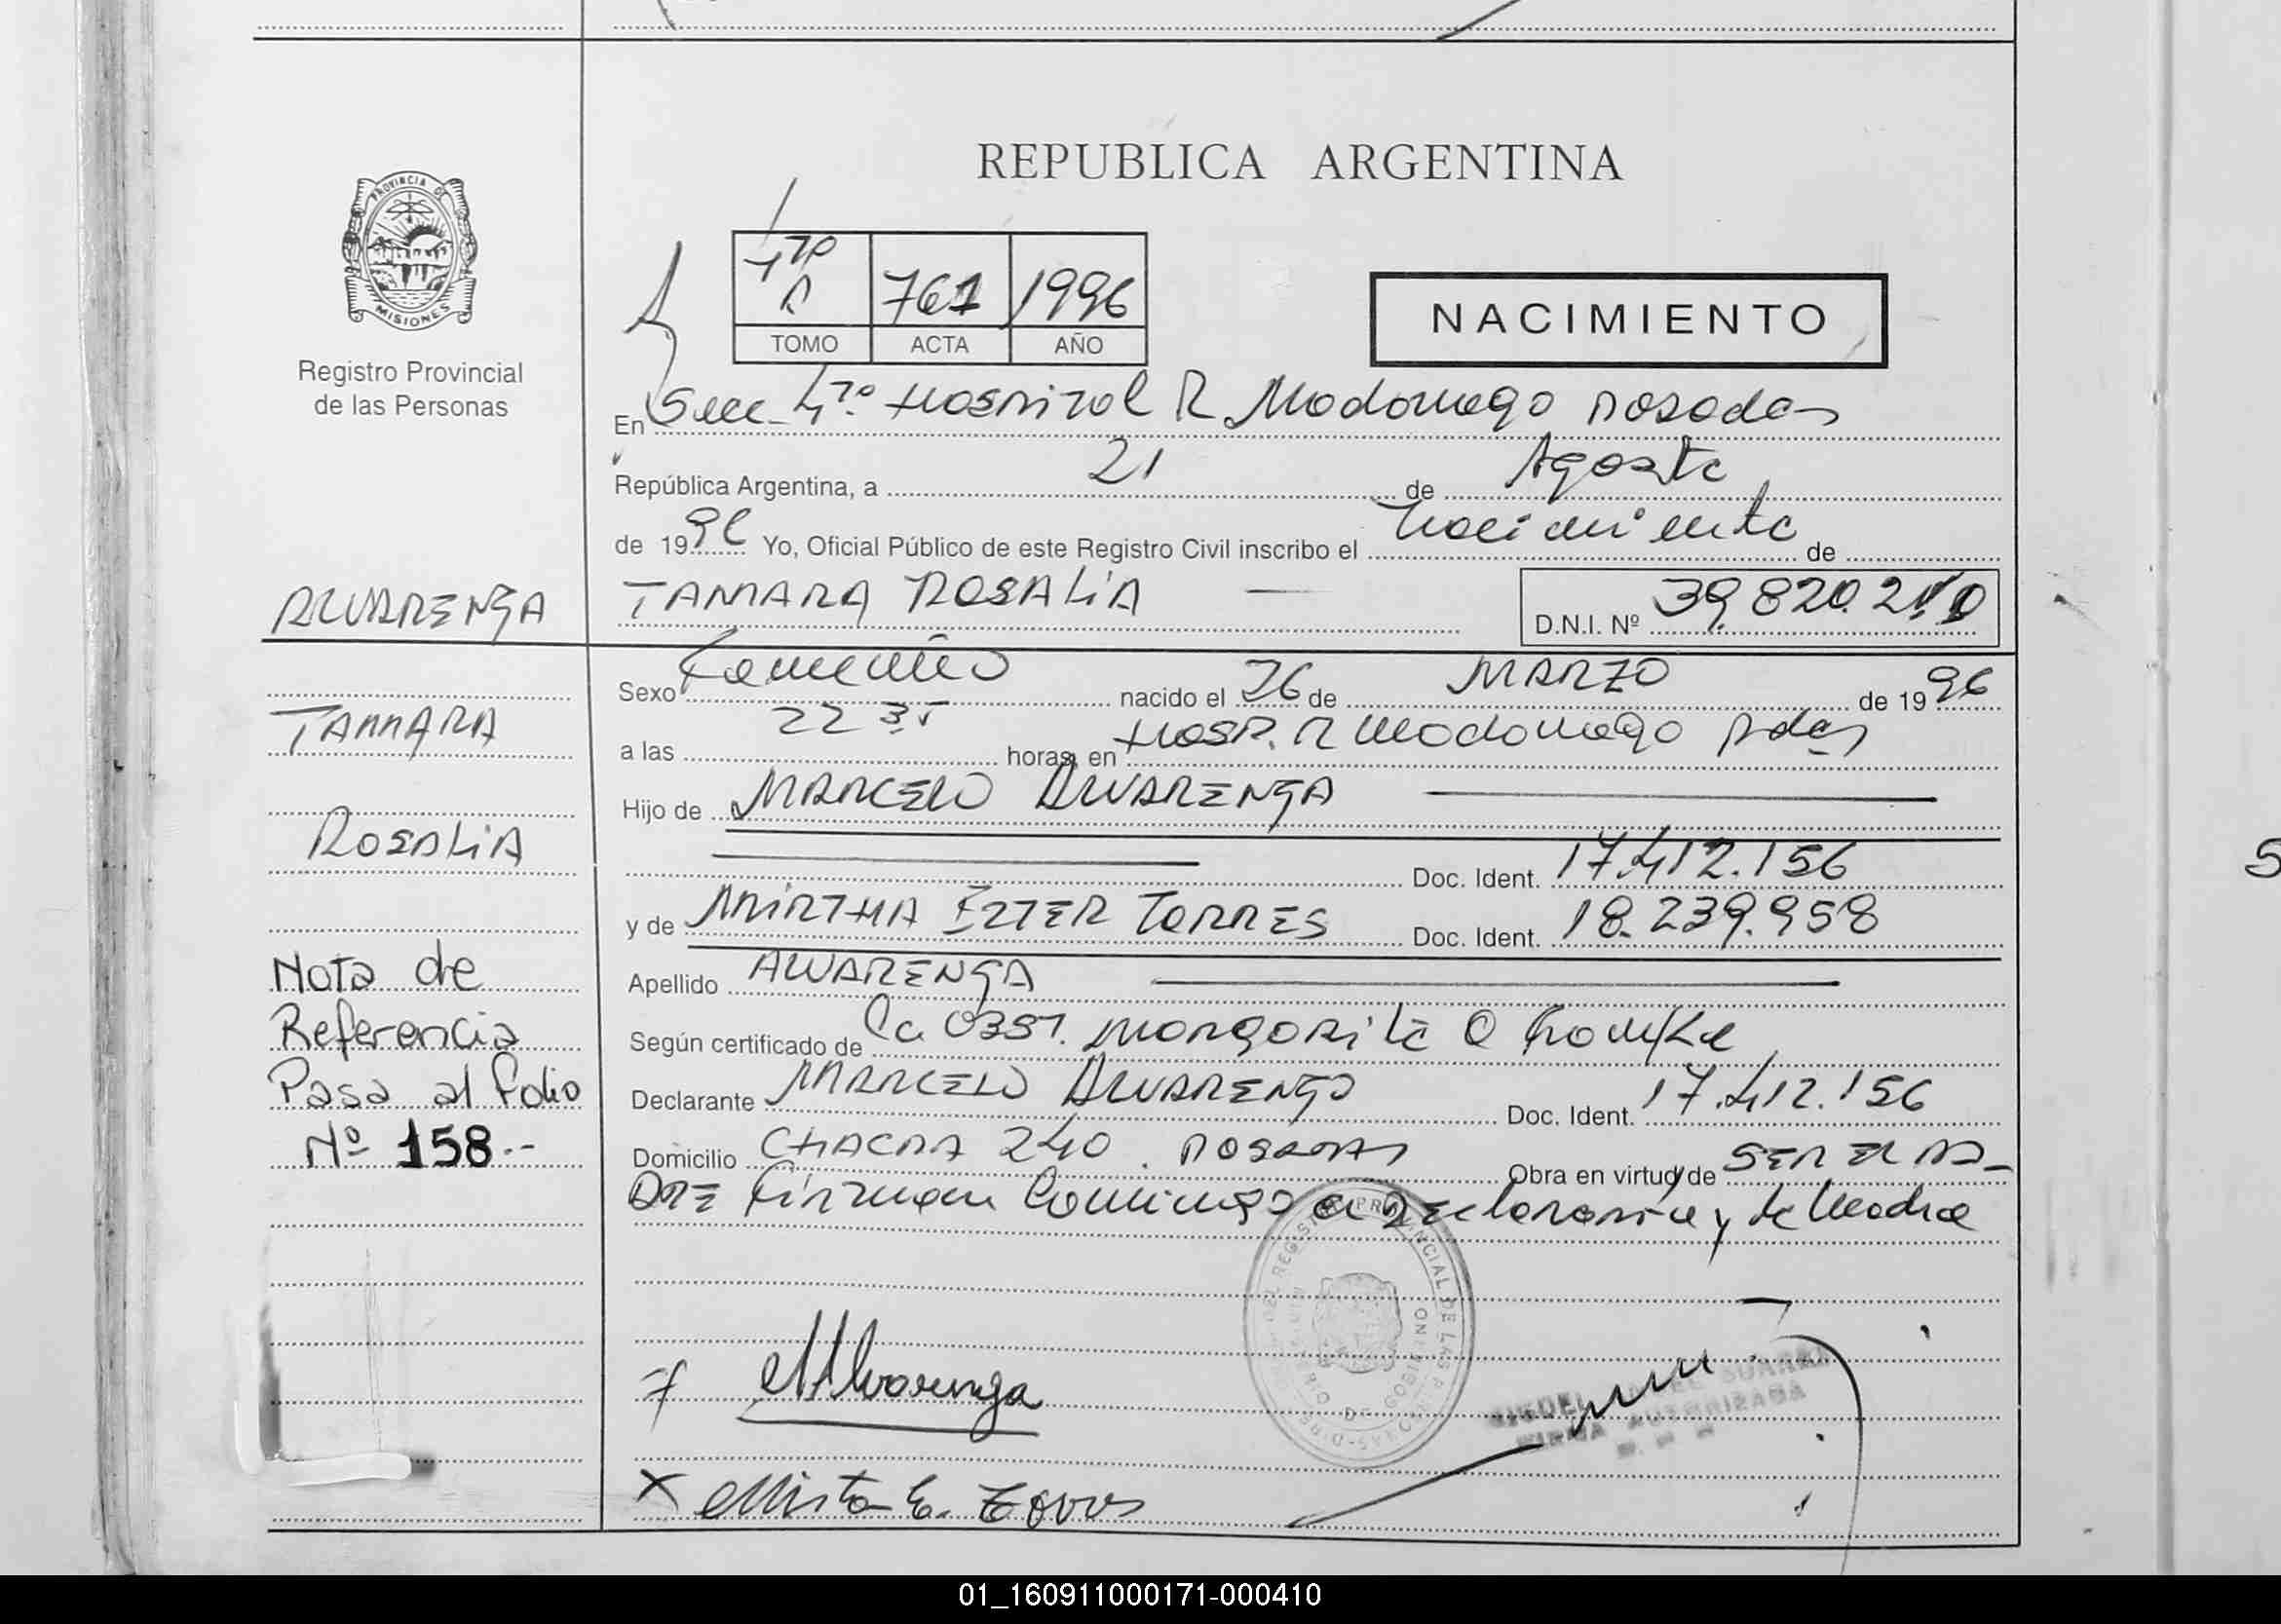 REPUBLICA ARGENTINA
PROVINCIA DE
MISIONES
Registro Provincial
de las Personas
761 1996
TOMO ACTA AÑO
NACIMIENTO
En Secc. 4ta. Hospital R. Madariaga Posadas
República Argentina, a 21 de Agosto
de 1996 Yo, Oficial Público de este Registro Civil inscribo el Nacimiento de
ALVARENGA
TAMARA ROSALIA
D.N.I. Nº 39.820.2
Sexo Femenino nacido el 26 de MARZO de 1996
TAMARA
a las 22 35 horas, en Hosp. R Madariaga Pdas
Hijo de MARCELO ALVARENGA
ROSALIA
Doc. Ident. 17.412.156
y de MIRTHA ESTER TORRES Doc. Ident. 18.239.958
Nota de
Referencia
Pasa al folio
Nº 158.-
Apellido ALVARENGA
Según certificado de La Obst. Margarita
Declarante MARCELO ALVARENGA Doc. Ident. 17.412.156
Domicilio CHACRA 240. POSADAS Obra en virtud de SER EL PA-
DRE Firman Conmigo el Declarante y la Madre
MAlvarenga
x Mirta E. Torres
FIRMA AUTORIZADA
01_160911000171-000410